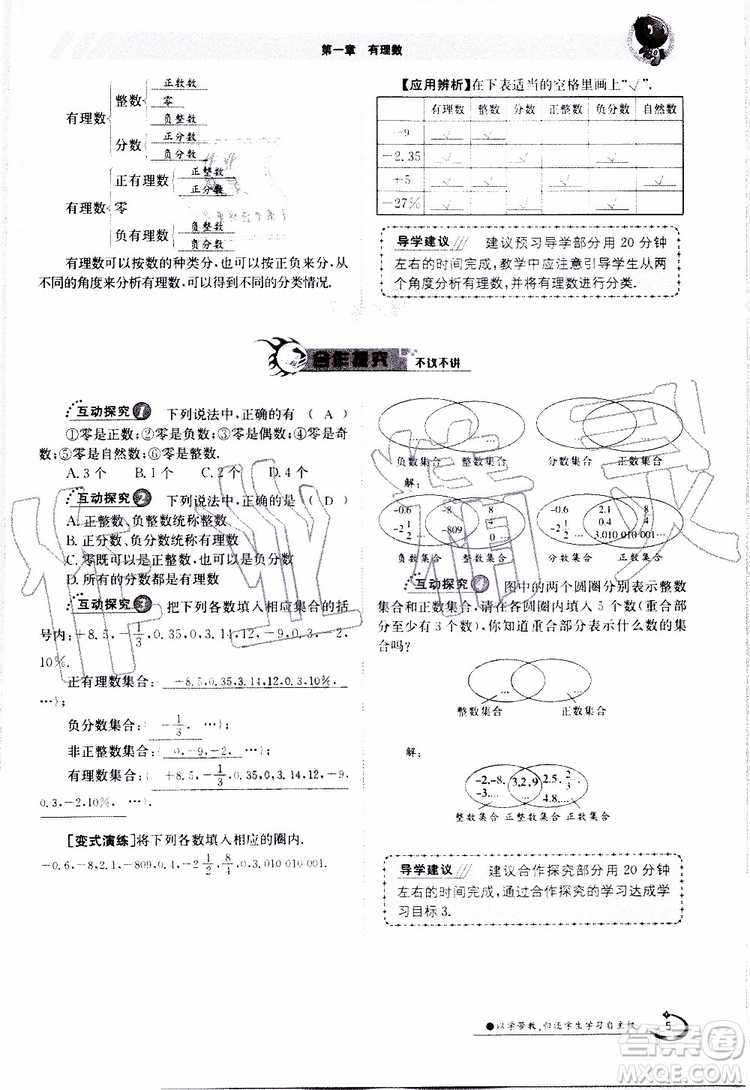 第一章 有理数
有理数
整数
正数数
零
负整数
分数
正分数
负分数
有理数
正有理数
正整数
正分数
零
负有理数
负整数
负分数
有理数可以按数的种类分,也可以按正负来分,从
不同的角度来分析有理数,可以得到不同的分类情况.
【应用辨析】在下表适当的空格里画上“√”.
有理数 整数 分数 正整数 负分数 自然数
-9 √ √
-2.35 √ √ √
+5 √ √ √ √
-27% √ √ √
导学建议 建议预习导学部分用 20 分钟
左右的时间完成,教学中应注意引导学生从两
个角度分析有理数,进行分类.
合作探究 不议不讲
互动探究 1 下列说法中,正确的有 ( A )
①零是正数;②零是负数;③零是偶数;④零是奇
数;⑤零是自然数;⑥零是整数.
A. 3 个 B. 1 个 C. 2 个 D. 4 个
互动探究 2 下列说法中,正确的是 ( D )
A. 正整数、负整数统称整数
B. 正分数、负分数统称有理数
C. 零既可以是正数,也可以是负数
D. 所有的分数都是有理数
互动探究 3 把下列各数填入相应集合的括
号内:+8.5,-1/3,0.35,0,3.14,12,-9,0.3,-2,
10%.
正有理数集合:{+8.5,0.35,3.14,12,0.3,10%
…};
负分数集合:{-1/3, …};
非正整数集合:{0,-9,-2, …};
有理数集合:{+8.5,-1/3,0.35,0,3.14,12,-9,
0.3,-2,10%, …}.
[变式演练]将下列各数填入相应的圈内.
-0.6,-8,2.1,-809,0.4,-2 1/2,8/4,3.010 010 001.
负数集合 整数集合 分数集合 正数集合
解:
-0.6
-2 1/2
-8
-809
8/4
负数集合 整数集合
-0.6
-2 1/2
2.1
0.4
3.010 010 001
8/4
分数集合 正数集合
互动探究 4 图中的两个圆圈分别表示整数
集合和正数集合,请在各圆圈内填入 5 个数(重合部
分至少有 3 个数),你知道重合部分表示什么数的集
合吗?
… …
整数集合 正数集合
解:
-2,-8,
-5,…
3,2,9
…
2.5,2/3,
4.8…
整数集合 正整数集合 正数集合
导学建议 建议合作探究部分用 20 分钟
左右的时间完成,通过合作探究的学习达成学
习目标 3.
●以学带教,归还学生学习自主权
5
作业精灵
答案圈